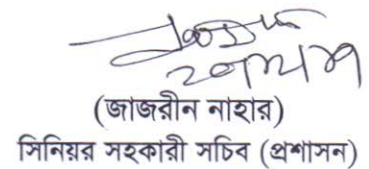 (জাজরীন নাহার)
সিনিয়র সহকারী সচিব (প্রশাসন)